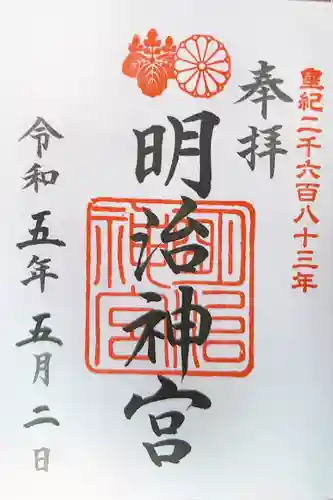 皇紀二千六百八十三年
奉拝
明治神宮
令和五年五月二日
明治神宮